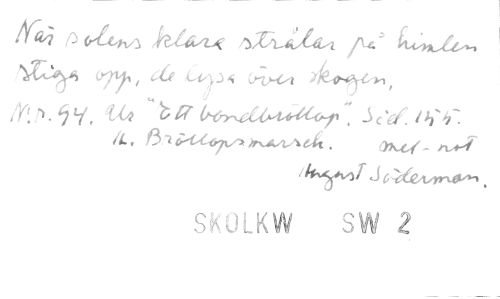 När solens klara strålar på himlen
stiga opp, de lysa över skogen,
N:r. 94. Ur "Ett bondbröllop". Sid. 155.
II. Bröllopsmarsch. mel-not
August Söderman.
SKOLKW SW 2